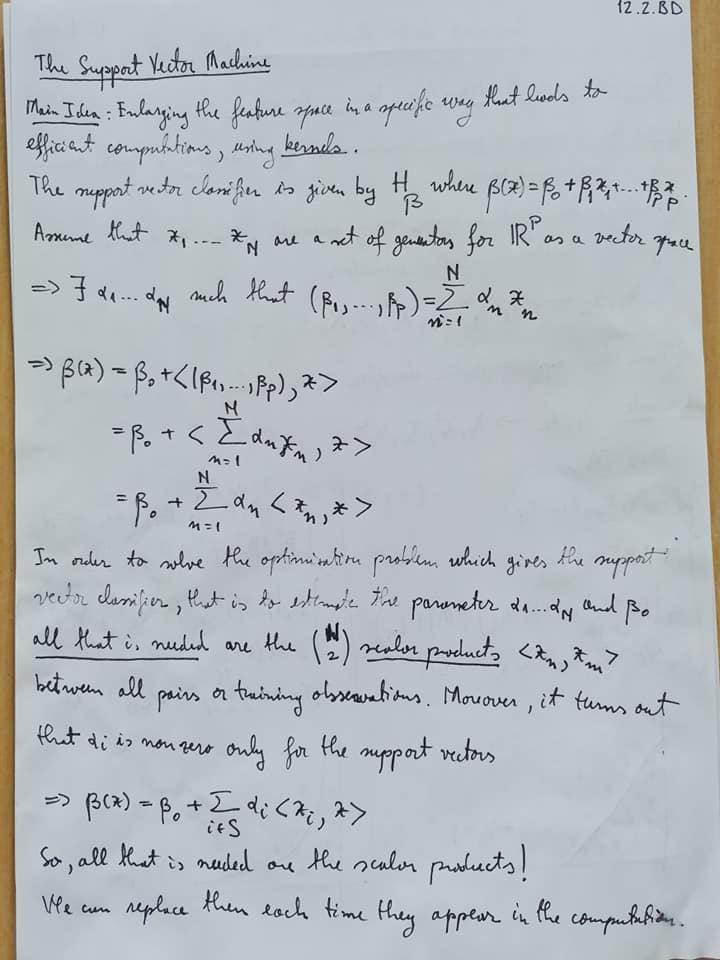 12.2.BD
The Support Vector Machine
Main Idea: Enlarging the feature space in a specific way that leads to
efficient computations, using kernels.
The support vector classifier is given by H_β where β(x) = β₀ + β₁x₁ + ... + βₚxₚ.
Assume that x₁ ... x_N are a set of generators for ℝᵖ as a vector space
⇒ ∃ α₁ ... α_N such that (β₁, ..., βₚ) = ∑_{n=1}^{N} αₙ xₙ
⇒ β(x) = β₀ + <(β₁, ..., βₚ), x>
= β₀ + < ∑_{n=1}^{N} αₙ xₙ, x>
= β₀ + ∑_{n=1}^{N} αₙ <xₙ, x>
In order to solve the optimisation problem which gives the support
vector classifier, that is to estimate the parameter α₁ ... α_N and β₀
all that is needed are the (N 2) scalar products <xₙ, xₘ>
between all pairs or training observations. Moreover, it turns out
that αᵢ is nonzero only for the support vectors
⇒ β(x) = β₀ + ∑_{i∈S} αᵢ <xᵢ, x>
So, all that is needed are the scalar products!
We can replace then each time they appear in the computation.